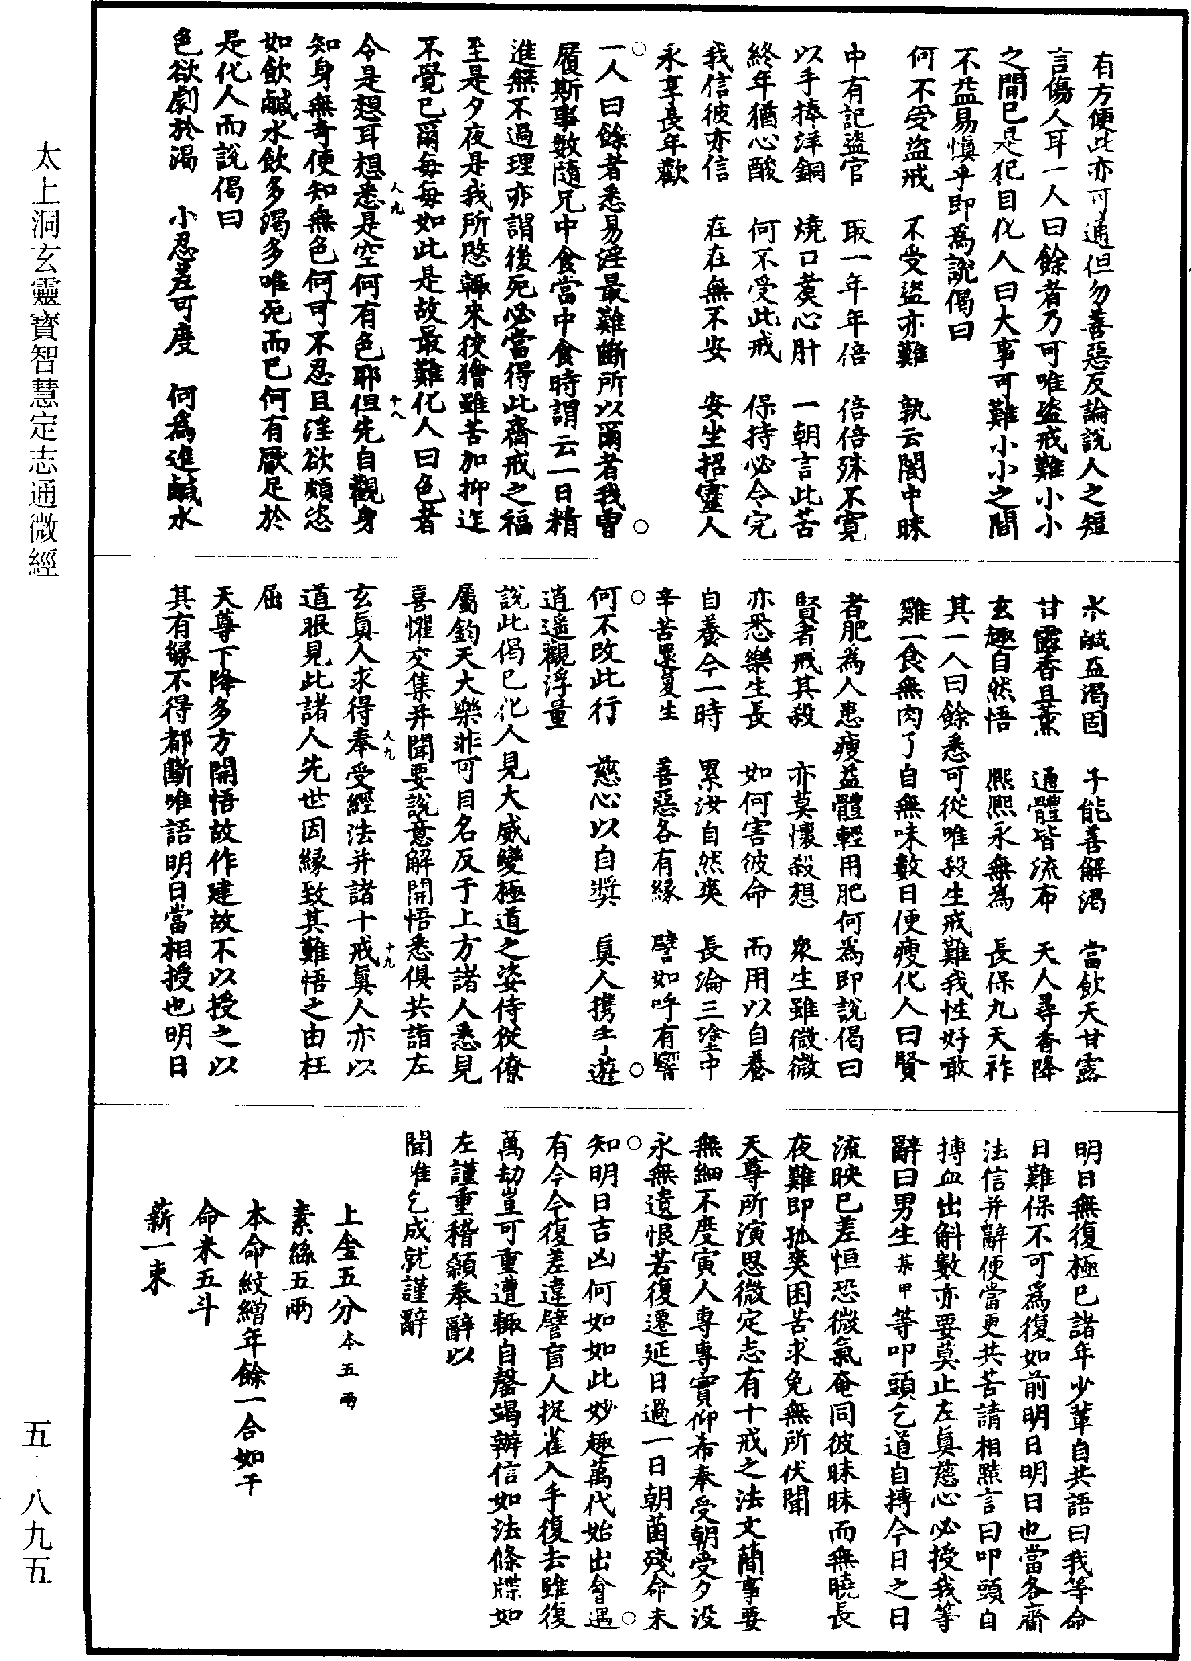 有方便此亦可通但勿善惡反論說人之短
言傷人耳一人曰餘者乃可唯盜戒難小小
之間已是犯目化人曰大事可難小小之間
不益易慎乎即為說偈曰
何不受盜戒　不受盜亦難　孰云闇中昧
中有記盜官　取一年年倍　倍倍殊不寬
以手捧洋銅　燒口爛心肝　一朝言此苦
終年猶心酸　何不受此戒　保持必令完
我信彼亦信　在在無不安　安生招靈人
永享長年歡
一人曰餘者悉易淫最難斷所以爾者我曾
履斯事數隨兄中食當中食時謂云一日精
進無不過理亦謂後死必當得此齋戒之福
至是夕夜是我所愍輒來狡獪雖苦加抑迮
不覺已爾每每如此是故最難化人曰色者
令是想耳想悉是空何有色耶但先自觀身
知身無奇便知無色何可不忍且淫欲頗恣
如飲鹹水飲多渴多唯死而已何有厭足於
是化人而說偈曰
色欲劇於渴　小忍差可度　何為進鹹水
水鹹益渴固　予能善解渴　當飲天甘露
甘露香且薰　通體皆流布　天人尋香降
玄趣自然悟　熙熙永無為　長保九天祚
其一人曰餘悉可從唯殺生戒難我性好噉
雞一食無肉了自無味數日便瘦化人曰賢
者肥為人患瘦益體輕用肥何為即說偈曰
賢者戒其殺　亦莫懷殺想　眾生雖微微
亦悉樂生長　如何害彼命　而用以自養
自養今一時　累汝自然喪　長淪三塗中
辛苦還復生　善惡各有緣　譬如呼有響
何不改此行　慈心以自獎　真人攜手遊
逍遙觀浮量
說此偈已化人見大威變極道之姿侍從僚
屬鈞天大樂非可目名反于上方諸人悉見
喜懼交集并聞要說意解開悟悉俱共詣左
玄真人求得奉受經法并諸十戒真人亦以
道眼見此諸人先世因緣致其難悟之由枉
屈
天尊下降多方開悟故作建故不以授之以
其有緣不得都斷唯語明日當相授也明日
明日無復極已諸年少輩自共語曰我等命
日難保不可為復如前明日明日也當各齋
法信并辭便當更共苦請相然言曰叩頭自
搏血出斛數亦要莫止左真慈心必授我等
辭曰男生某甲等叩頭乞道自搏今日之日
流映已差恒恐微氣奄同彼昧昧而無曉長
夜難即孤爽困苦求免無所伏聞
天尊所演思微定志有十戒之法文蕳事要
無細不度寅人專專實仰希奉受朝受夕沒
永無遺恨若復遷延日過一日朝菌殘命未
知明日吉凶何如如此妙趣萬代始出會遇
有今今復差違譬盲人捉雀入手復去雖復
萬劫豈可重遭輒自罄竭辦信如法條牒如
左謹重稽顙奉辭以
聞唯乞成就謹辭
上金五分本五兩
素絲五兩
本命紋繒年餘一合如干
命米五斗
薪一束
太上洞玄靈寶智慧定志通微經
五·八九五